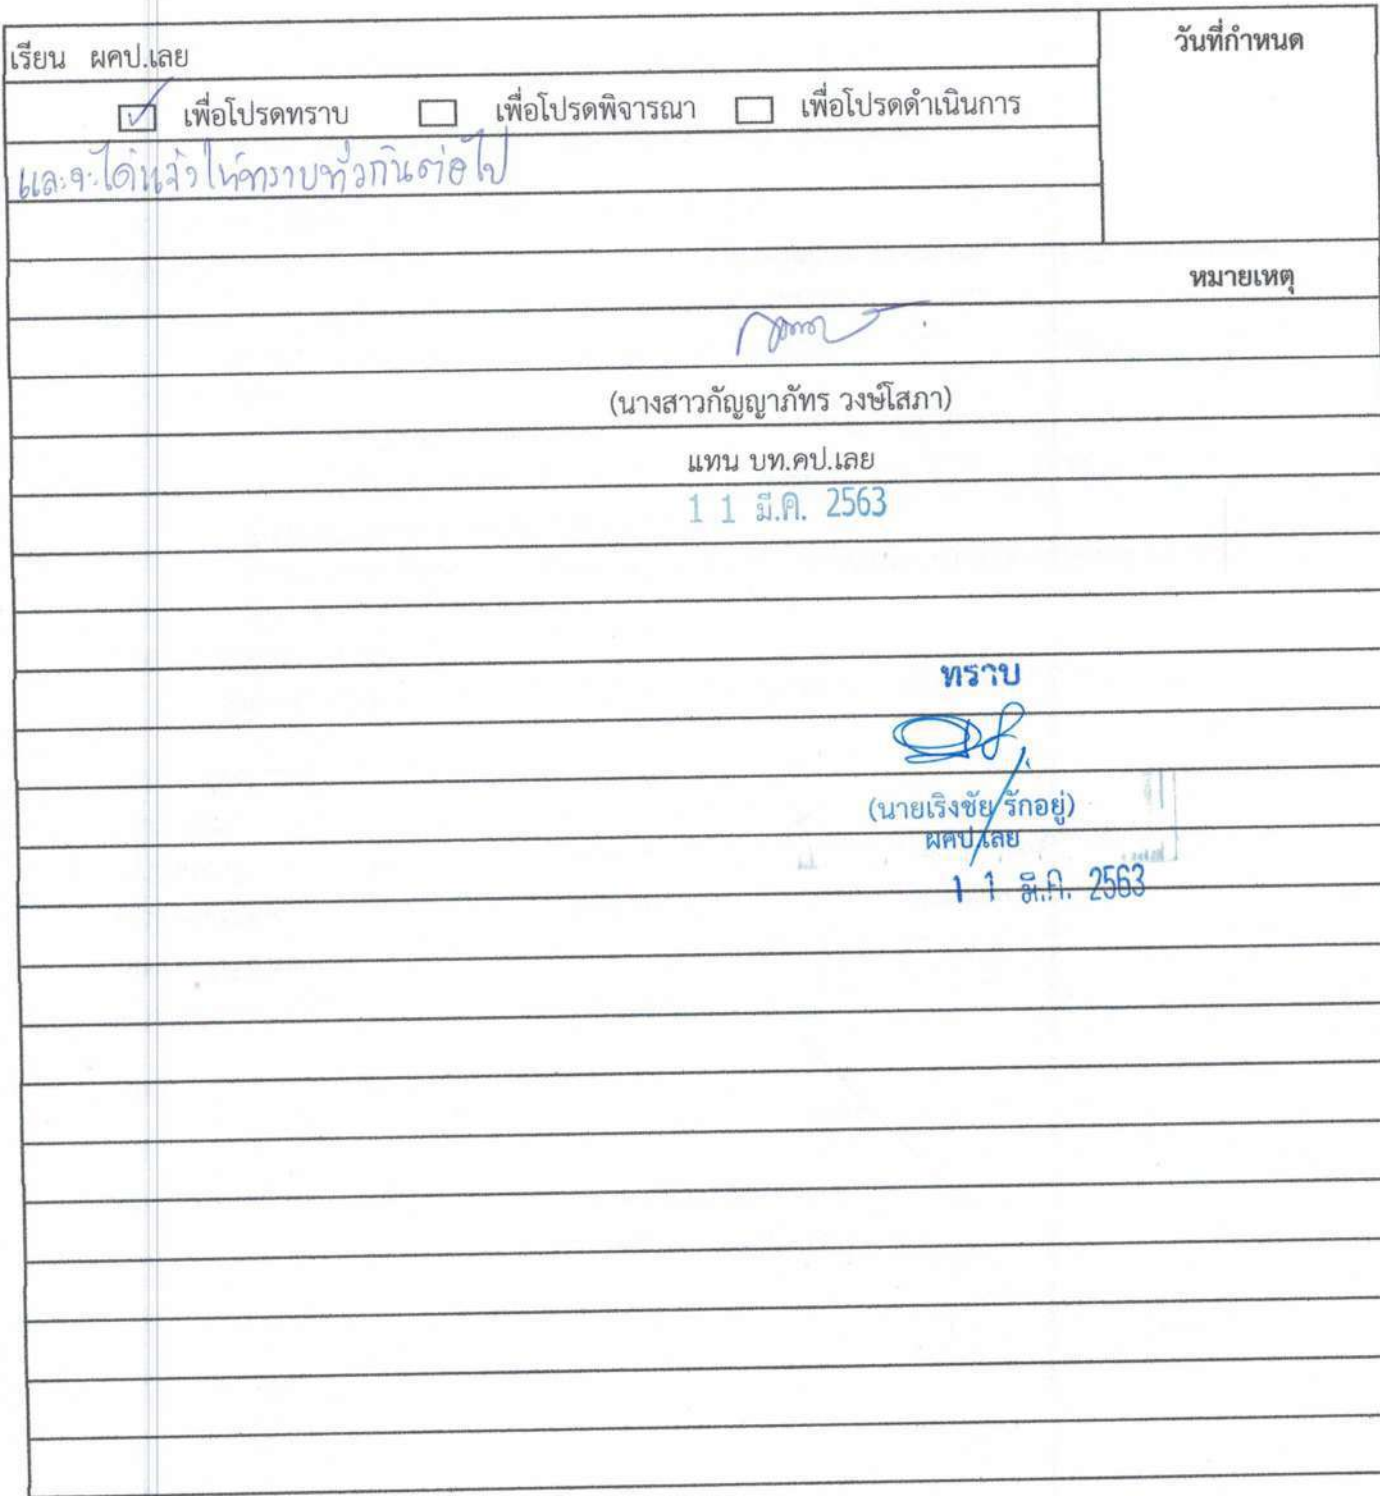 เรียน ผคป.เลย
วันที่กำหนด
เพื่อโปรดทราบ เพื่อโปรดพิจารณา เพื่อโปรดดำเนินการ
และจะได้แจ้งให้ทราบทั่วกันต่อไป
หมายเหตุ
(นางสาวกัญญาภัทร วงษ์โสภา)
แทน บท.คป.เลย
1 1 มี.ค. 2563
ทราบ
(นายเริงชัย รักอยู่)
ผคป.เลย
1 1 มี.ค. 2563